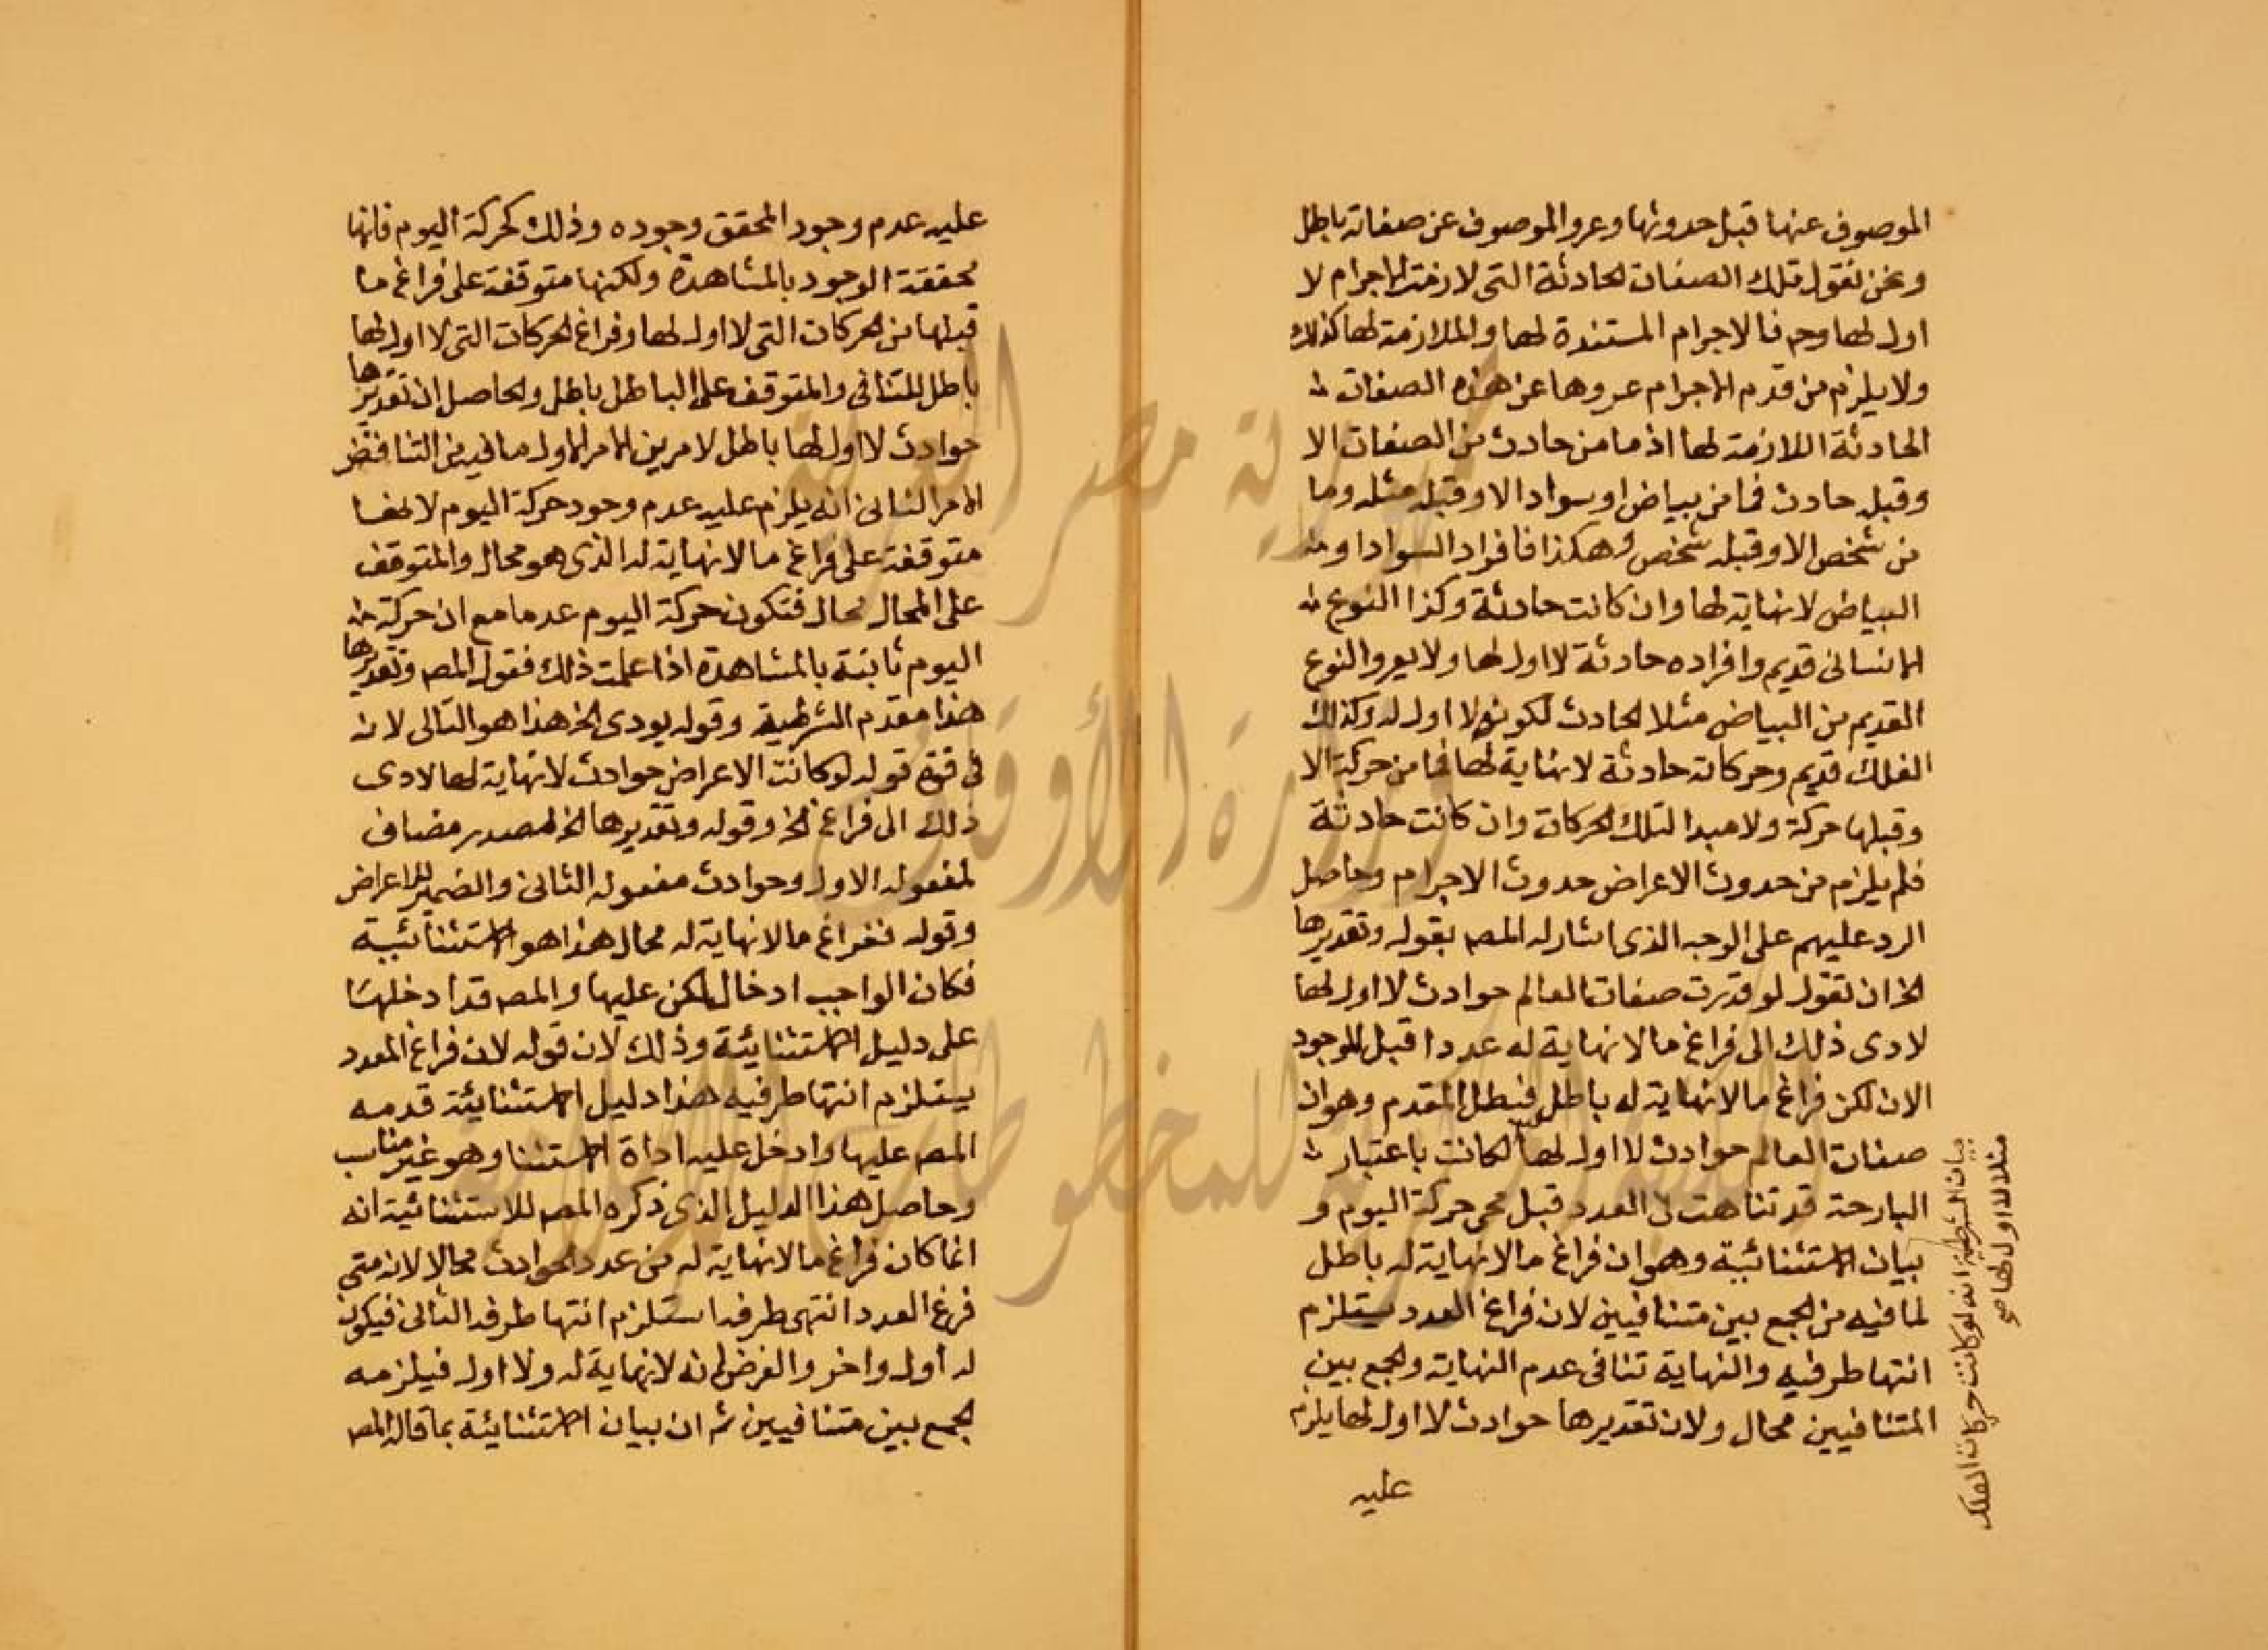 الموصوف عنها قبل حدوثها وعرو الموصوف عن صفاته باطل
ونحن نقول تلك الصفات الحادثة التى لازمت الاجرام لا
اول لها وح فالاجرام المستندة لها والملازمة لها كذلك
ولا يلزم من قدم الاجرام عروها عن هذه الصفات
الحادثة اللازمة لها اذ ما من حادث من الصفات الا
وقبله حادث فما من بياض او سواد الا وقبله مثله وما
من شخص الا وقبله شخص وهكذا فافراد السواد او
البياض لا نهاية لها وان كانت حادثة وكذا النوع
الانسانى قديم وافراده حادثة لا اول لها ولا يعرو النوع
القديم من البياض مثلا الحادث لكونه لا اول له وكذلك
الفلك قديم وحركاته حادثة لا نهاية لها فما من حركة الا
وقبلها حركة ولا مبدا لتلك الحركات وان كانت حادثة
فلم يلزم من حدوث الاعراض حدوث الاجرام وحاصل
الرد عليهم على الوجه الذى اشار له المص بقوله وتقديرها
الخ ان نقول لو قدرت صفات العالم حوادث لا اول لها
لادى ذلك الى فراغ ما لا نهاية له عددا قبل الموجود
الان لكن فراغ ما لا نهاية له باطل فبطل المقدم وهو ان
صفات العالم حوادث لا اول لها لكانت باعتبار
البارحة قد تناهت فى العدد قبل مجى حركة اليوم و
بيان الاستثنائية وهو ان فراغ ما لا نهاية له باطل
لما فيه من الجمع بين متنافيين لان فراغ العدد يستلزم
انتها طرفيه والنهاية تنافى عدم النهاية والجمع بين
المتنافيين محال ولان تقديرها حوادث لا اول لها يلزم
عليه
بيان الشرطية انه لو كانت حركات الفلك
مثلا لا اول لها صح
عليه عدم وجود المحقق وجوده وذلك كحركة اليوم فانها
محققة الوجود بالمشاهدة ولكنها متوقفة على فراغ ما
قبلها من الحركات التى لا اول لها وفراغ الحركات التى لا اول لها
باطل للتنافى والمتوقف على الباطل باطل والحاصل ان تقديرها
حوادث لا اول لها باطل لامرين الامر الاول ما فيه من التناقض
الامر الثانى انه يلزم عليه عدم وجود حركة اليوم لانها
متوقفة على فراغ ما لا نهاية له الذى هو محال والمتوقف
على المحال محال فتكون حركة اليوم عدما مع ان حركة
اليوم ثابتة بالمشاهدة اذا علمت ذلك فقول المص وتقديرها
هذا مقدم الشرطية وقوله يودى الخ هذا هو التالى لانه
فى قوة قوله لو كانت الاعراض حوادث لا نهاية لها لادى
ذلك الى فراغ الخ وقوله وتقديرها الخ مصدر مضاف
لمفعوله الاول وحوادث مفعوله الثانى والضمير للاعراض
وقوله ففراغ ما لا نهاية له محال هذا هو الاستثنائية
فكان الواجب ادخال لكن عليها والمص قد ادخلها
على دليل الاستثنائية وذلك لان قوله لان فراغ العدد
يستلزم انتها طرفيه هذا دليل الاستثنائية قدمه
المص عليها وادخل عليه اداة الاستثنا وهو غير مناسب
وحاصل هذا الدليل الذى ذكره المص للاستثنائية انه
انما كان فراغ ما لا نهاية له من عدد الحوادث محالا لانه متى
فرغ العدد انتهى طرفه استلزم انتها طرفه الثانى فيكون
له اول واخر والفرض انه لا نهاية له ولا اول فيلزمه
الجمع بين متنافيين ثم ان بيان الاستثنائية بما قاله المص